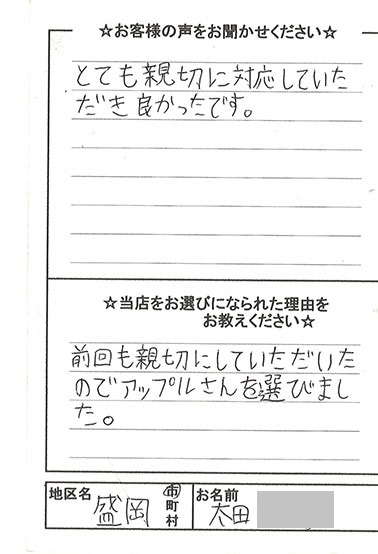 ☆お客様の声をお聞かせください☆
とても親切に対応していた
だき良かったです。
☆当店をお選びになられた理由を
お教えください☆
前回も親切にしていただいた
のでアップルさんを選びまし
た。
地区名 盛岡 市町村 お名前 太田